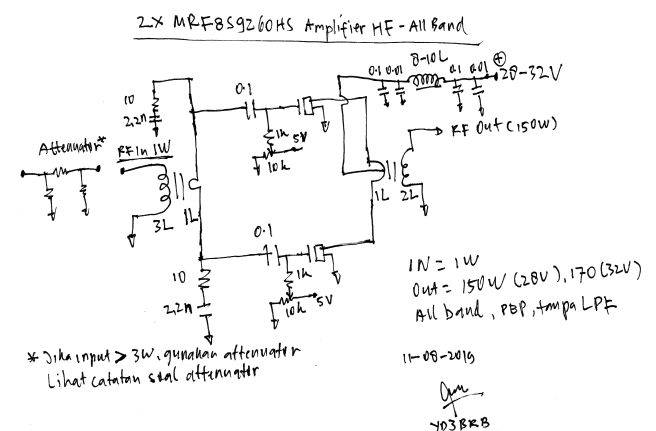 2x MRF8S9260HS Amplifier HF - All Band
8-10L
0.1 0.01
0.1 0.01
⊕
28-32V
10
2,2n
0.1
1k
5V
10k
Attenuator*
RF in 1W
RF Out (150W)
3L
1L
1L
2L
0.1
10
2,2n
1k
10k
5V
IN = 1W
Out = 150W (28V), 170 (32V)
All band, PEP, tanpa LPF
* Jika input > 3W, gunakan attenuator
Lihat catatan soal attenuator
11-08-2019
YD3BRB